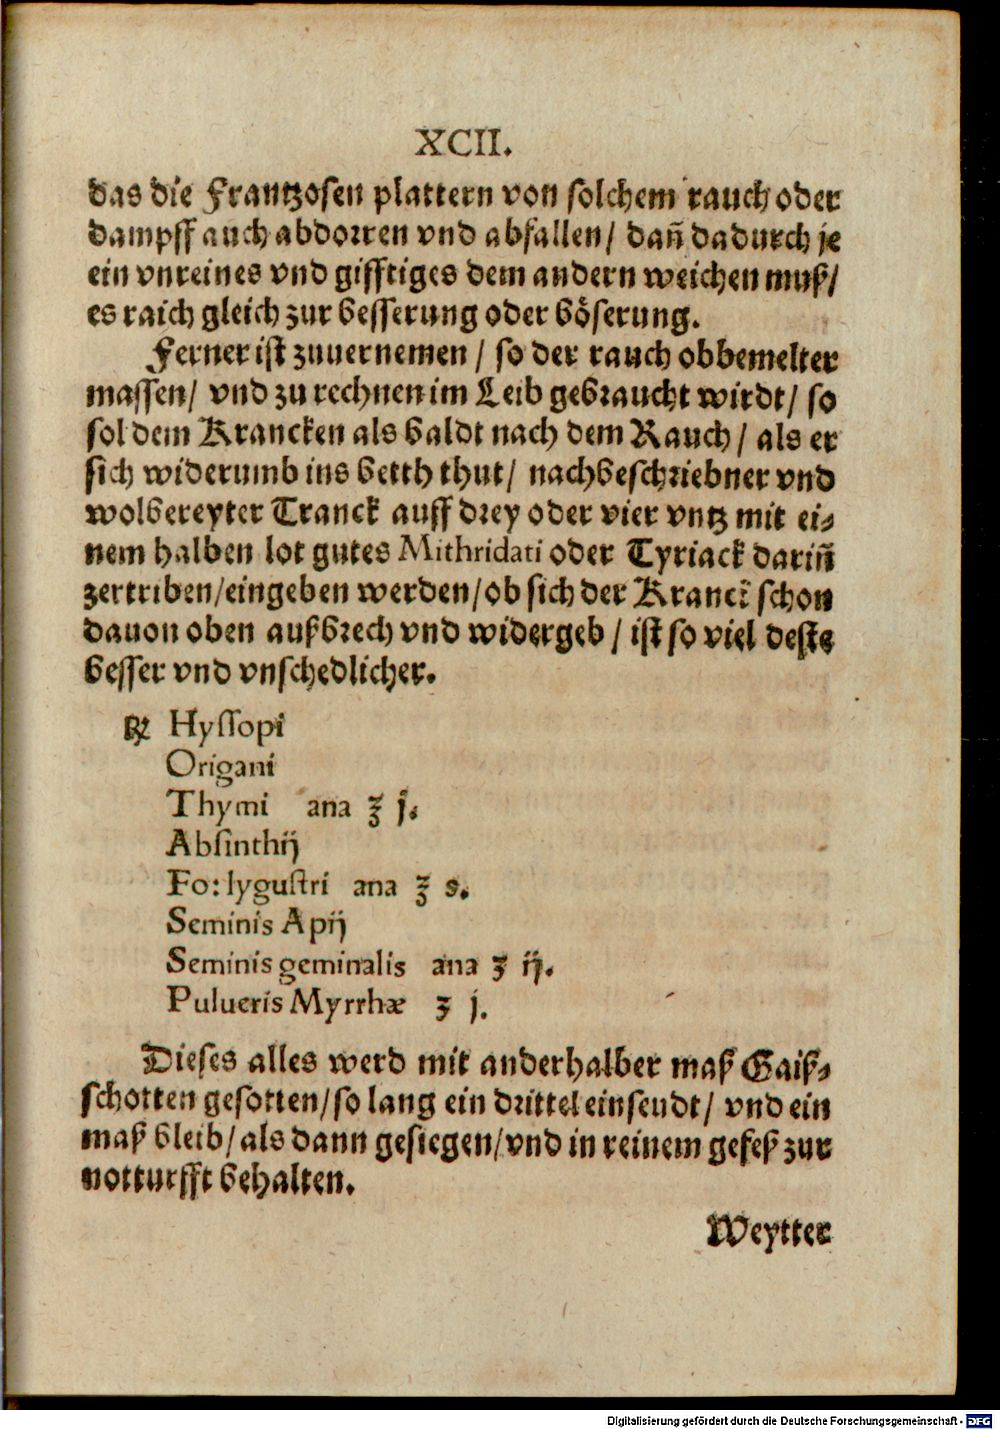 XCII.
das die Frantzosen plattern von solchem rauch oder
dampff auch abdorren vnd abfallen/ dañ dadurch je
ein vnreines vnd gifftiges dem andern weichen muß/
es raich gleich zur besserung oder böserung.
Ferner ist zuuernemen / so der rauch obbemelter
massen/ vnd zu rechnen im Leib gebraucht wirdt/ so
sol dem Krancken als baldt nach dem Rauch / als er
sich widerumb ins betth thut/ nachbeschriebner vnd
wolbereyter Tranck auff drey oder vier vntz mit ei⸗
nem halben lot gutes Mithridati oder Tyriack dariñ
zertriben/eingeben werden/ob sich der Kranck schon
dauon oben außbrech vnd widergeb / ist so viel deste
besser vnd vnschedlicher.
℞ Hyssopi
Origani
Thymi ana ℥ j.
Absinthij
Fo: lygustri ana ℥ s.
Seminis Apij
Seminis geminalis ana ʒ ij.
Pulueris Myrrhæ ʒ j.
Dieses alles werd mit anderhalber maß Gaiß⸗
schotten gesotten/so lang ein drittel einseudt/ vnd ein
maß bleib/als dann gesiegen/vnd in reinem gefeß zur
notturfft behalten.
Weytter
Digitalisierung gefördert durch die Deutsche Forschungsgemeinschaft - DFG